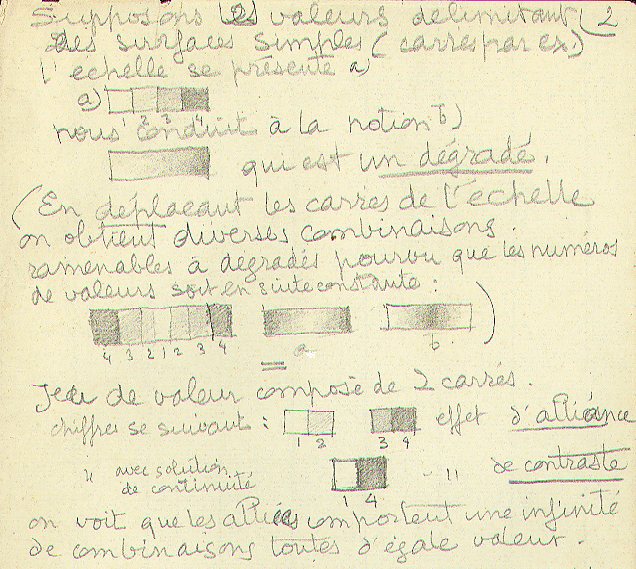 Supposons les valeurs délimitant 2
des surfaces simples (carrés par ex.)
l'échelle se présente a)
a)
2 3 4
nous conduit à la notion b)
qui est un dégradé.
(En déplaçant les carrés de l'échelle
on obtient diverses combinaisons
ramenables à dégradés pourvu que les numéros
de valeurs soit en suite constante :
4 3 2 1 2 3 4
a b )
Jeu de valeur composé de 2 carrés.
chiffres se suivant : 1 2 3 4 effet d'alliance
" avec solution de continuité 1 4 - " de contraste
on voit que les alliées comportent une infinité
de combinaisons toutes d'égale valeur.